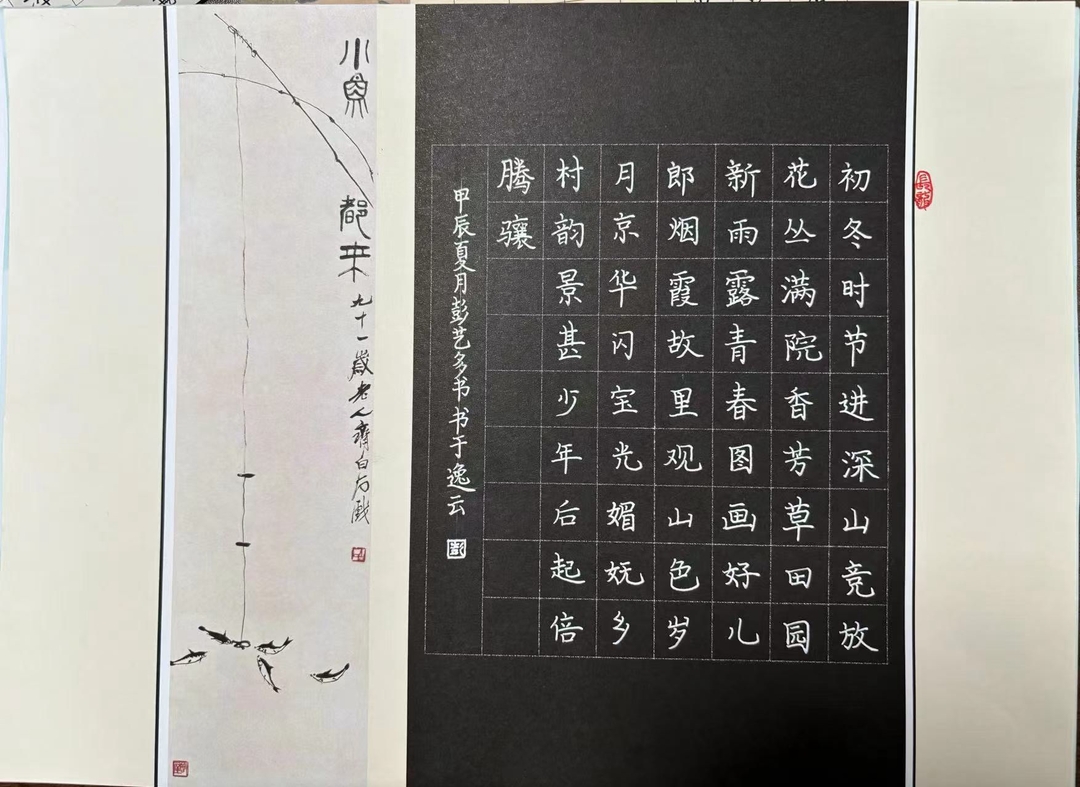 初冬时节进深山竞放
花丛满院香芳草田园
新雨露青春图画好儿
郎烟霞故里观山色岁
月京华闪宝光媚妩乡
村韵景甚少年后起倍
腾骧
甲辰夏月彭艺多书书于逸云
小魚都来
九十一歲老人齊白石戲